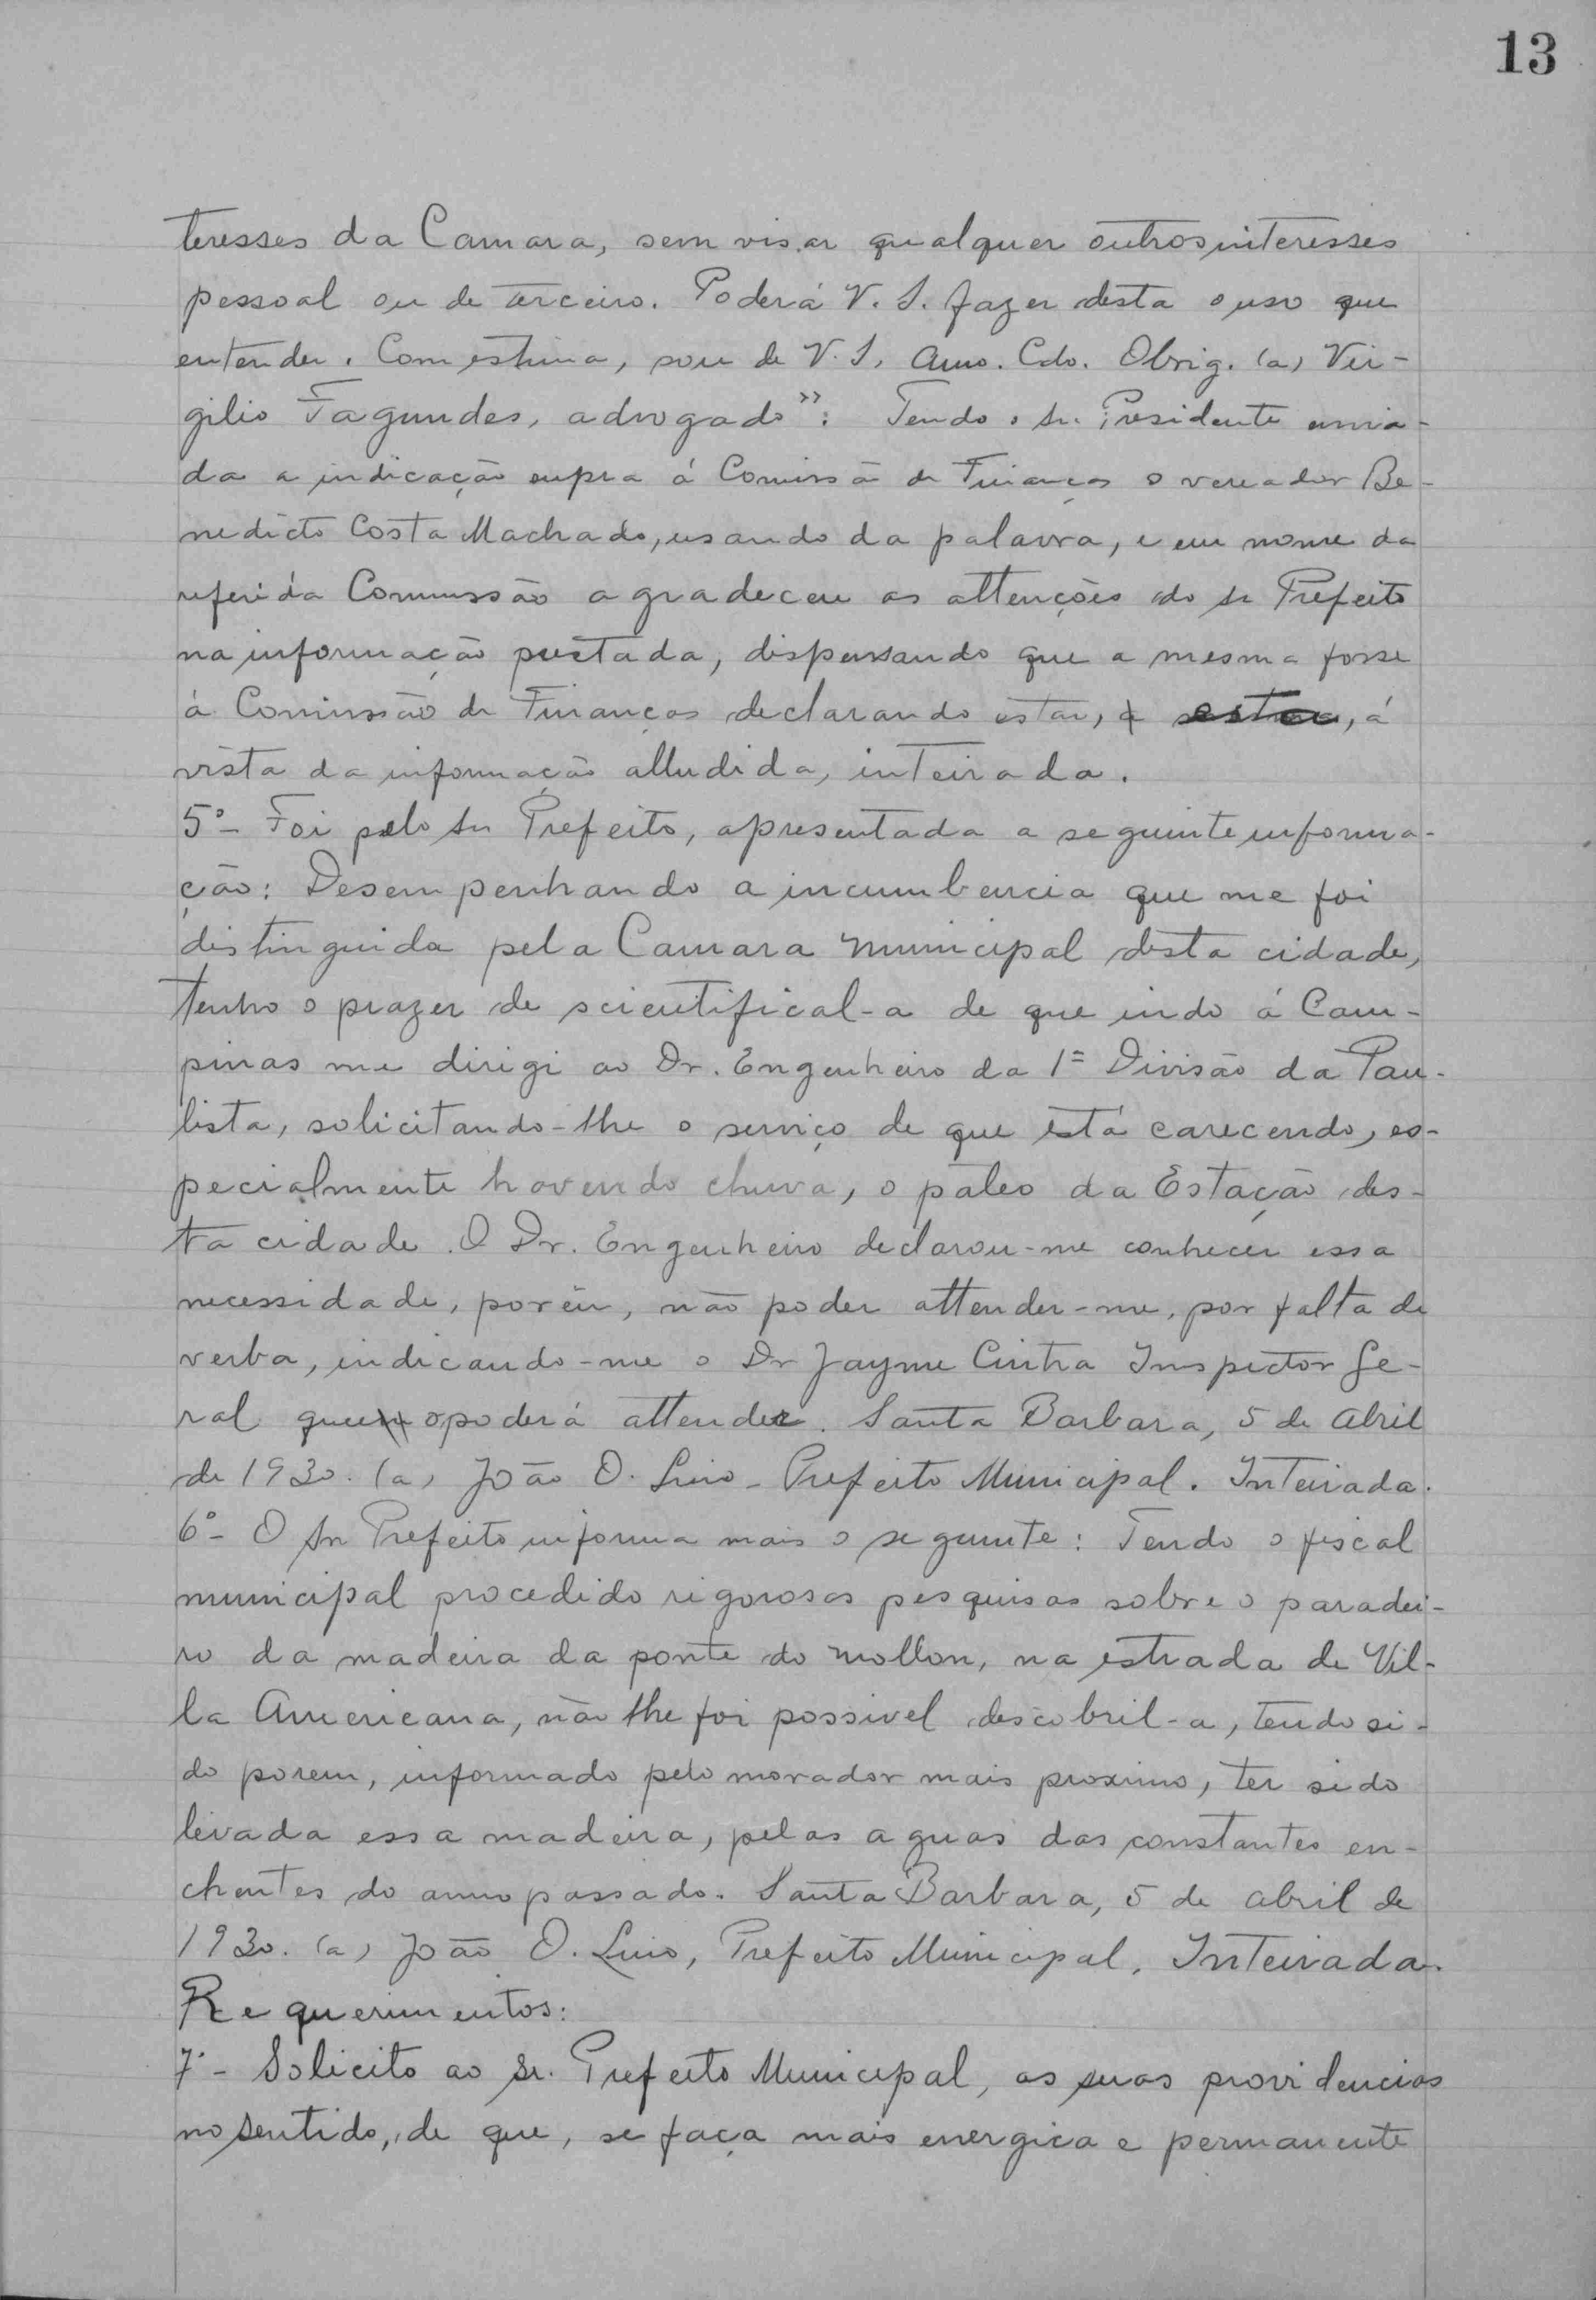 13
teresses da Camara, sem visar qualquer outros interesses
pessoal ou de terceiro. Poderá V. S. fazer desta o uso que
entender. Com estima, sou de V. S. Amo. Cdo. Obrig. (a) Vir-
gilio Fagundes, advogado": Tendo o sr. Presidente envia-
da a indicação supra á Comissão de Finanças o vereador Be-
nedicto Costa Machado, usando da palavra, e em nome da
referida Commissão agradeceu as attenções do sr Prefeito
na informação prestada, dispensando que a mesma fosse
á Comissão de Finanças declarando estar, á
vista da informação alludida, inteirada.
5º- Foi pelo sr Prefeito, apresentada a seguinte informa-
ção: Desempenhando a incumbencia que me foi
distinguida pela Camara Municipal desta cidade,
tenho o prazer de scientifical-a de que indo á Cam-
pinas me dirigi ao Dr. Engenheiro da 1ª Divisão da Pau-
lista, solicitando-lhe o serviço de que está carecendo, es-
pecialmente havendo chuva, o pateo da Estação des-
ta cidade. O Dr. Engenheiro declarou-me conhecer essa
necessidade, porém, não poder attender-me, por falta de
verba, indicando-me o Dr Jayme Cintra Inspector Ge-
ral que o poderá attender. Santa Barbara, 5 de Abril
de 1930. (a) João O. Lino - Prefeito Municipal. Inteirada.
6º- O Sr Prefeito informa mais o seguinte: Tendo o fiscal
municipal procedido rigorosas pesquisas sobre o paradei-
ro da madeira da ponte do Mollon, na estrada de Vil-
la Americana, não lhe foi possivel descobril-a, tendo si-
do porem, informado pelo morador mais proximo, ter sido
levada essa madeira, pelas aguas das constantes en-
chentes do anno passado. Santa Barbara, 5 de abril de
1930. (a) João O. Lino, Prefeito Municipal. Inteirada.
Requerimentos:
7º- Solicito ao Sr. Prefeito Municipal, as suas providencias
no sentido, de que, se faça mais energica e permanente